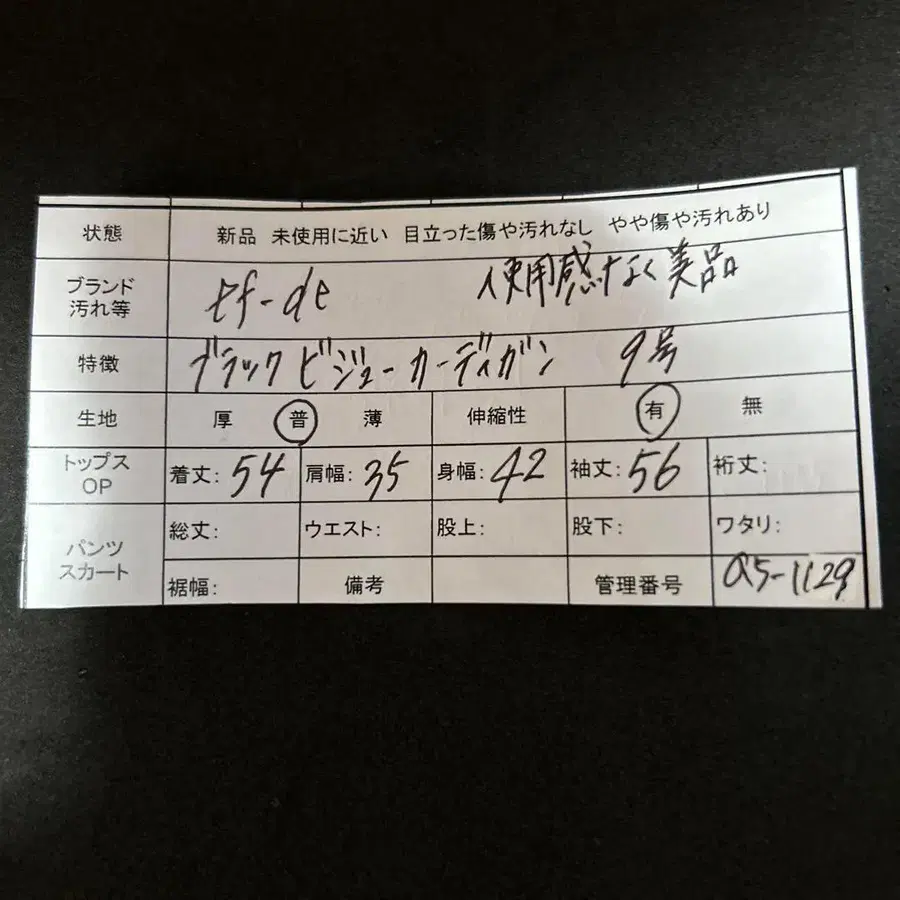 状態 新品 未使用に近い 目立った傷や汚れなし やや傷や汚れあり
ブランド 汚れ等 ef-de 使用感なく美品
特徴 ブラックビジューカーディガン 9号
生地 厚 普 薄 伸縮性 有 無
トップス OP 着丈: 54 肩幅: 35 身幅: 42 袖丈: 56 裄丈:
パンツ スカート 総丈: ウエスト: 股上: 股下: ワタリ:
裾幅: 備考 管理番号 a5-1129